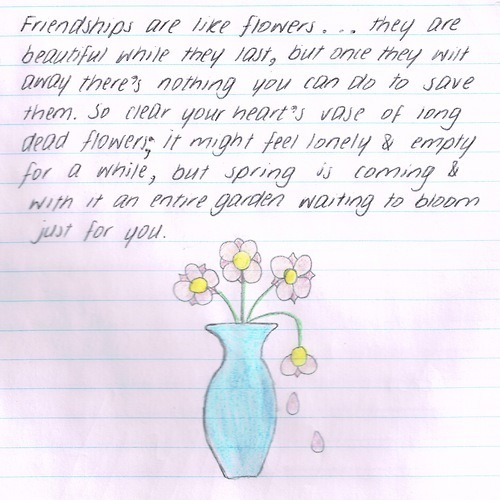 Friendships are like flowers... they are
beautiful while they last, but once they wilt
away there's nothing you can do to save
them. So clear your heart's vase of long
dead flowers; it might feel lonely & empty
for a while, but spring is coming &
with it an entire garden waiting to bloom
just for you.